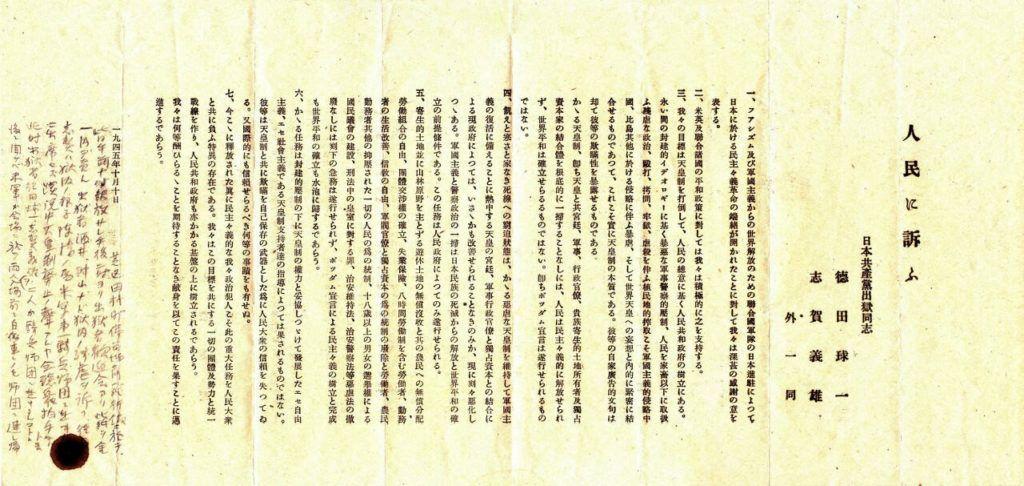 人民に訴ふ
日本共産黨出獄同志
德田球一
志賀義雄
外一同
一、フアシズム及び軍國主義からの世界解放のための聯合國軍隊の日本進駐によつて
日本に於ける民主々義革命の端緒が開かれたことに對して我々は深甚の感謝の意を
表する。
二、米英及聯合諸國の平和政策に對しては我々は積極的に之を支持する。
三、我々の目標は天皇制を打倒して、人民の總意に基く人民共和政府の樹立にある。
永い間の封建的イデオロギーに基く暴惡な軍事警察的壓制、人民を家畜以下に取扱
ふ殘虐な政治、毆打、拷問、牢獄、虐殺を伴ふ植民地的搾取こそ軍國主義的侵略中
國、比島其他に於ける侵略に伴ふ暴虐、そして世界天皇への妄想と內的に緊密に結
合せるものであつて、これこそ實に天皇制の本質である。彼等の自家廣告的文句は
却て彼等の欺瞞性を暴露せるものである。
かゝる天皇制、卽ち天皇と其宮廷、軍事、行政官僚、貴族寄生的土地所有者及獨占
資本家の結合體を根底的に一掃することなしには、人民は民主主義的に解放せられ
ず、世界平和は確立せらるるものではない。卽ちポツダム宣言は遂行せられるもの
ではない。
四、飢えと寒さと家なき死線への窮迫狀態は、かゝる惡虐な天皇制を維持して軍國主
義の復活に備えることに熱中する天皇の宮廷、軍事行政官僚と獨占資本との結合に
よる現政府によつては、いさゝかも改善せられることなきのみか、現に刻々惡化し
つゝある。軍國主義と警察政治の一掃は日本民族の死滅からの解放と世界平和の確
立の前提條件である。この任務は人民政府によつてのみ遂行せられる。
五、寄生的土地並に山林原野を主とする遊休土地の無償沒收と其の農民への無償分配
勞働組合の自由、團體交涉權の確立、失業保險、八時間勞働制を含む勞働者、勤務
者の生活改善、信敎の自由、軍閥官僚と獨占資本の爲の統制の廢除と勞働者、農民
勤務者其他の抑壓された一切の人民の爲の統制、十八歲以上の男女の選擧權による
國民議會の建設、刑法中の皇室に對する罪、治安維持法、治安警察法等惡虐法の徹
廢なしには刻下の急務は遂行せられず、ポツダム宣言による民主々義の樹立と完成
も世界平和の確立も水泡に歸するであらう。
六、かゝる任務は封建的壓制の下に天皇制の權力と妥協しつゝけて發展したエセ自由
主義、エセ社會主義である天皇制支持者達の指導によつては果されるものではない。
彼等は天皇制と共に欺瞞を自己保存の武器とした爲に人民大衆の信賴を失つてゐ
る。又國際的にも信賴せらるべき何等の事蹟をも有せぬ。
七、今こゝに釋放された眞に民主主義的な我々政治犯人こそ此の重大任務を人民大衆
と共に負ふ特異の存在である。我々はこの目標を共にする一切の團體及勢力と統一
戰線を作り、人民共和政府も亦かかる基礎の上に樹立されるであらう。
我々は何等酬ひらるゝことを期待することなき獻身を以てこの責任を果すことに邁
進するであらう。
一九四五年十月十日